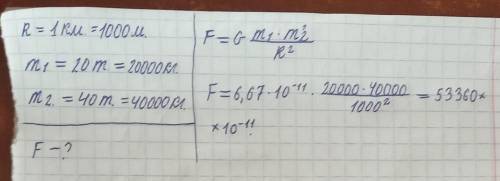 R = 1 км. = 1000 м.
m₁ = 20 т. = 20000 кг.
m₂. = 40 т. = 40000 кг.
F - ?
F = G · m₁ · m₂ / R²
F = 6,67 · 10⁻¹¹ · 20000 · 40000 / 1000² = 53360 ×
× 10⁻¹¹